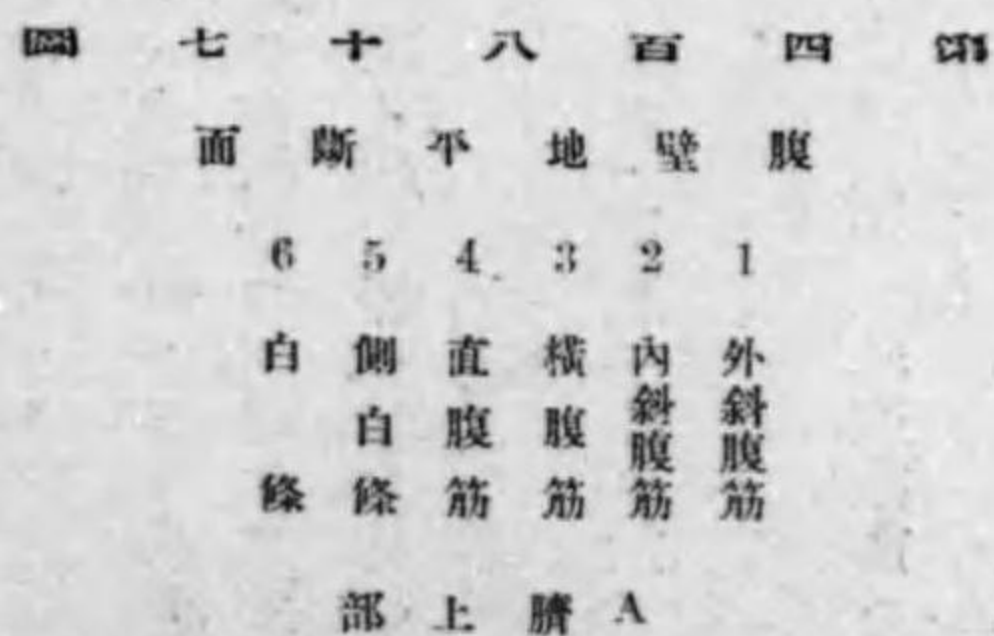 第四百八十七圖
腹壁地平斷面
1 外斜腹筋
2 內斜腹筋
3 橫腹筋
4 直腹筋
5 側白條
6 白條
A 臍上部